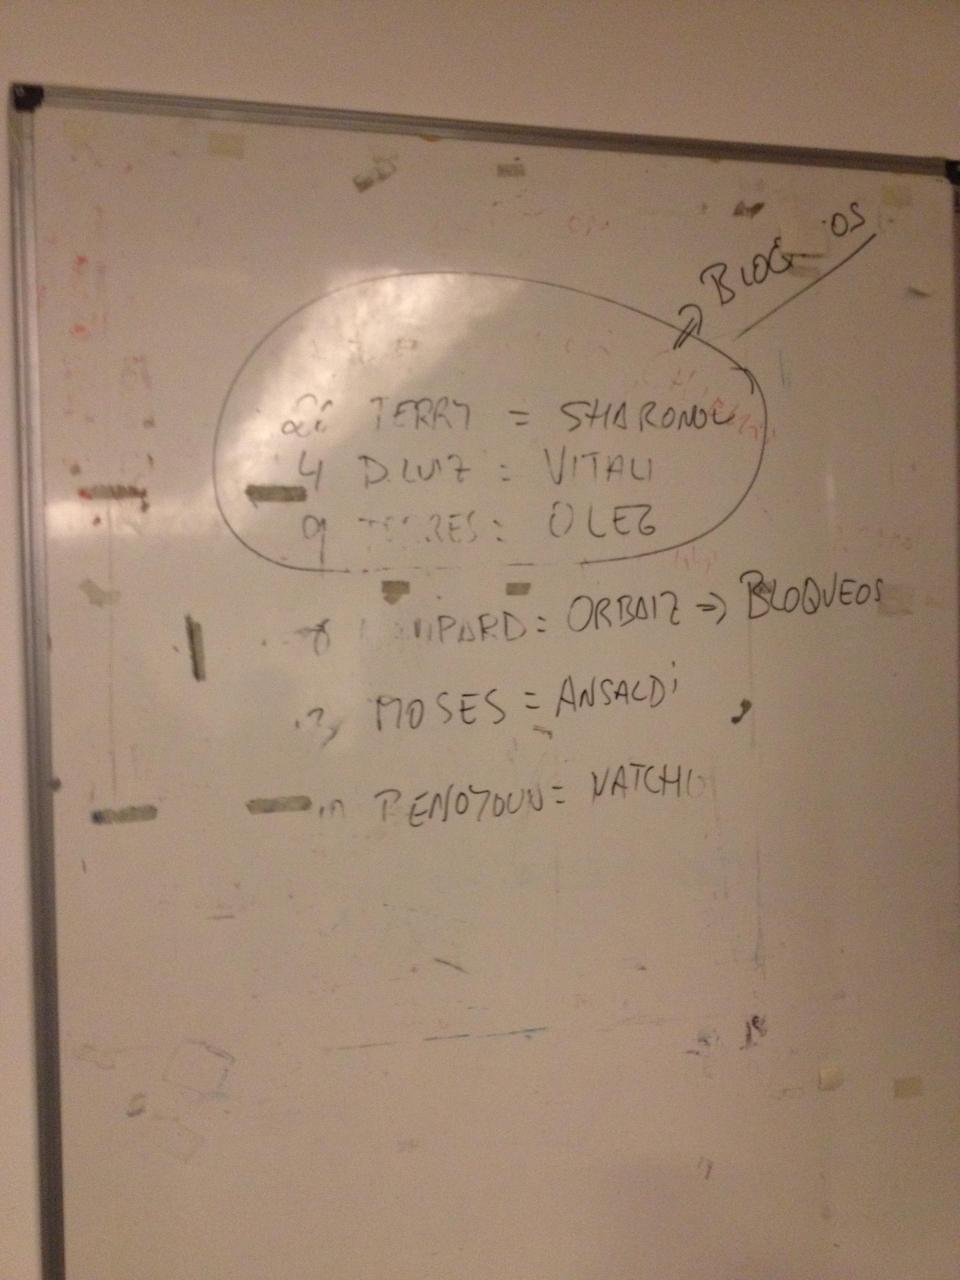 BLOQ OS
26 TERRY = SHARONOV
4 D.LUIZ = VITALI
9 TORRES = OLEG
8 MPARD = ORBAIZ => BLOQUEOS
13 MOSES = ANSALDi
BENOYOUN = NATCHO